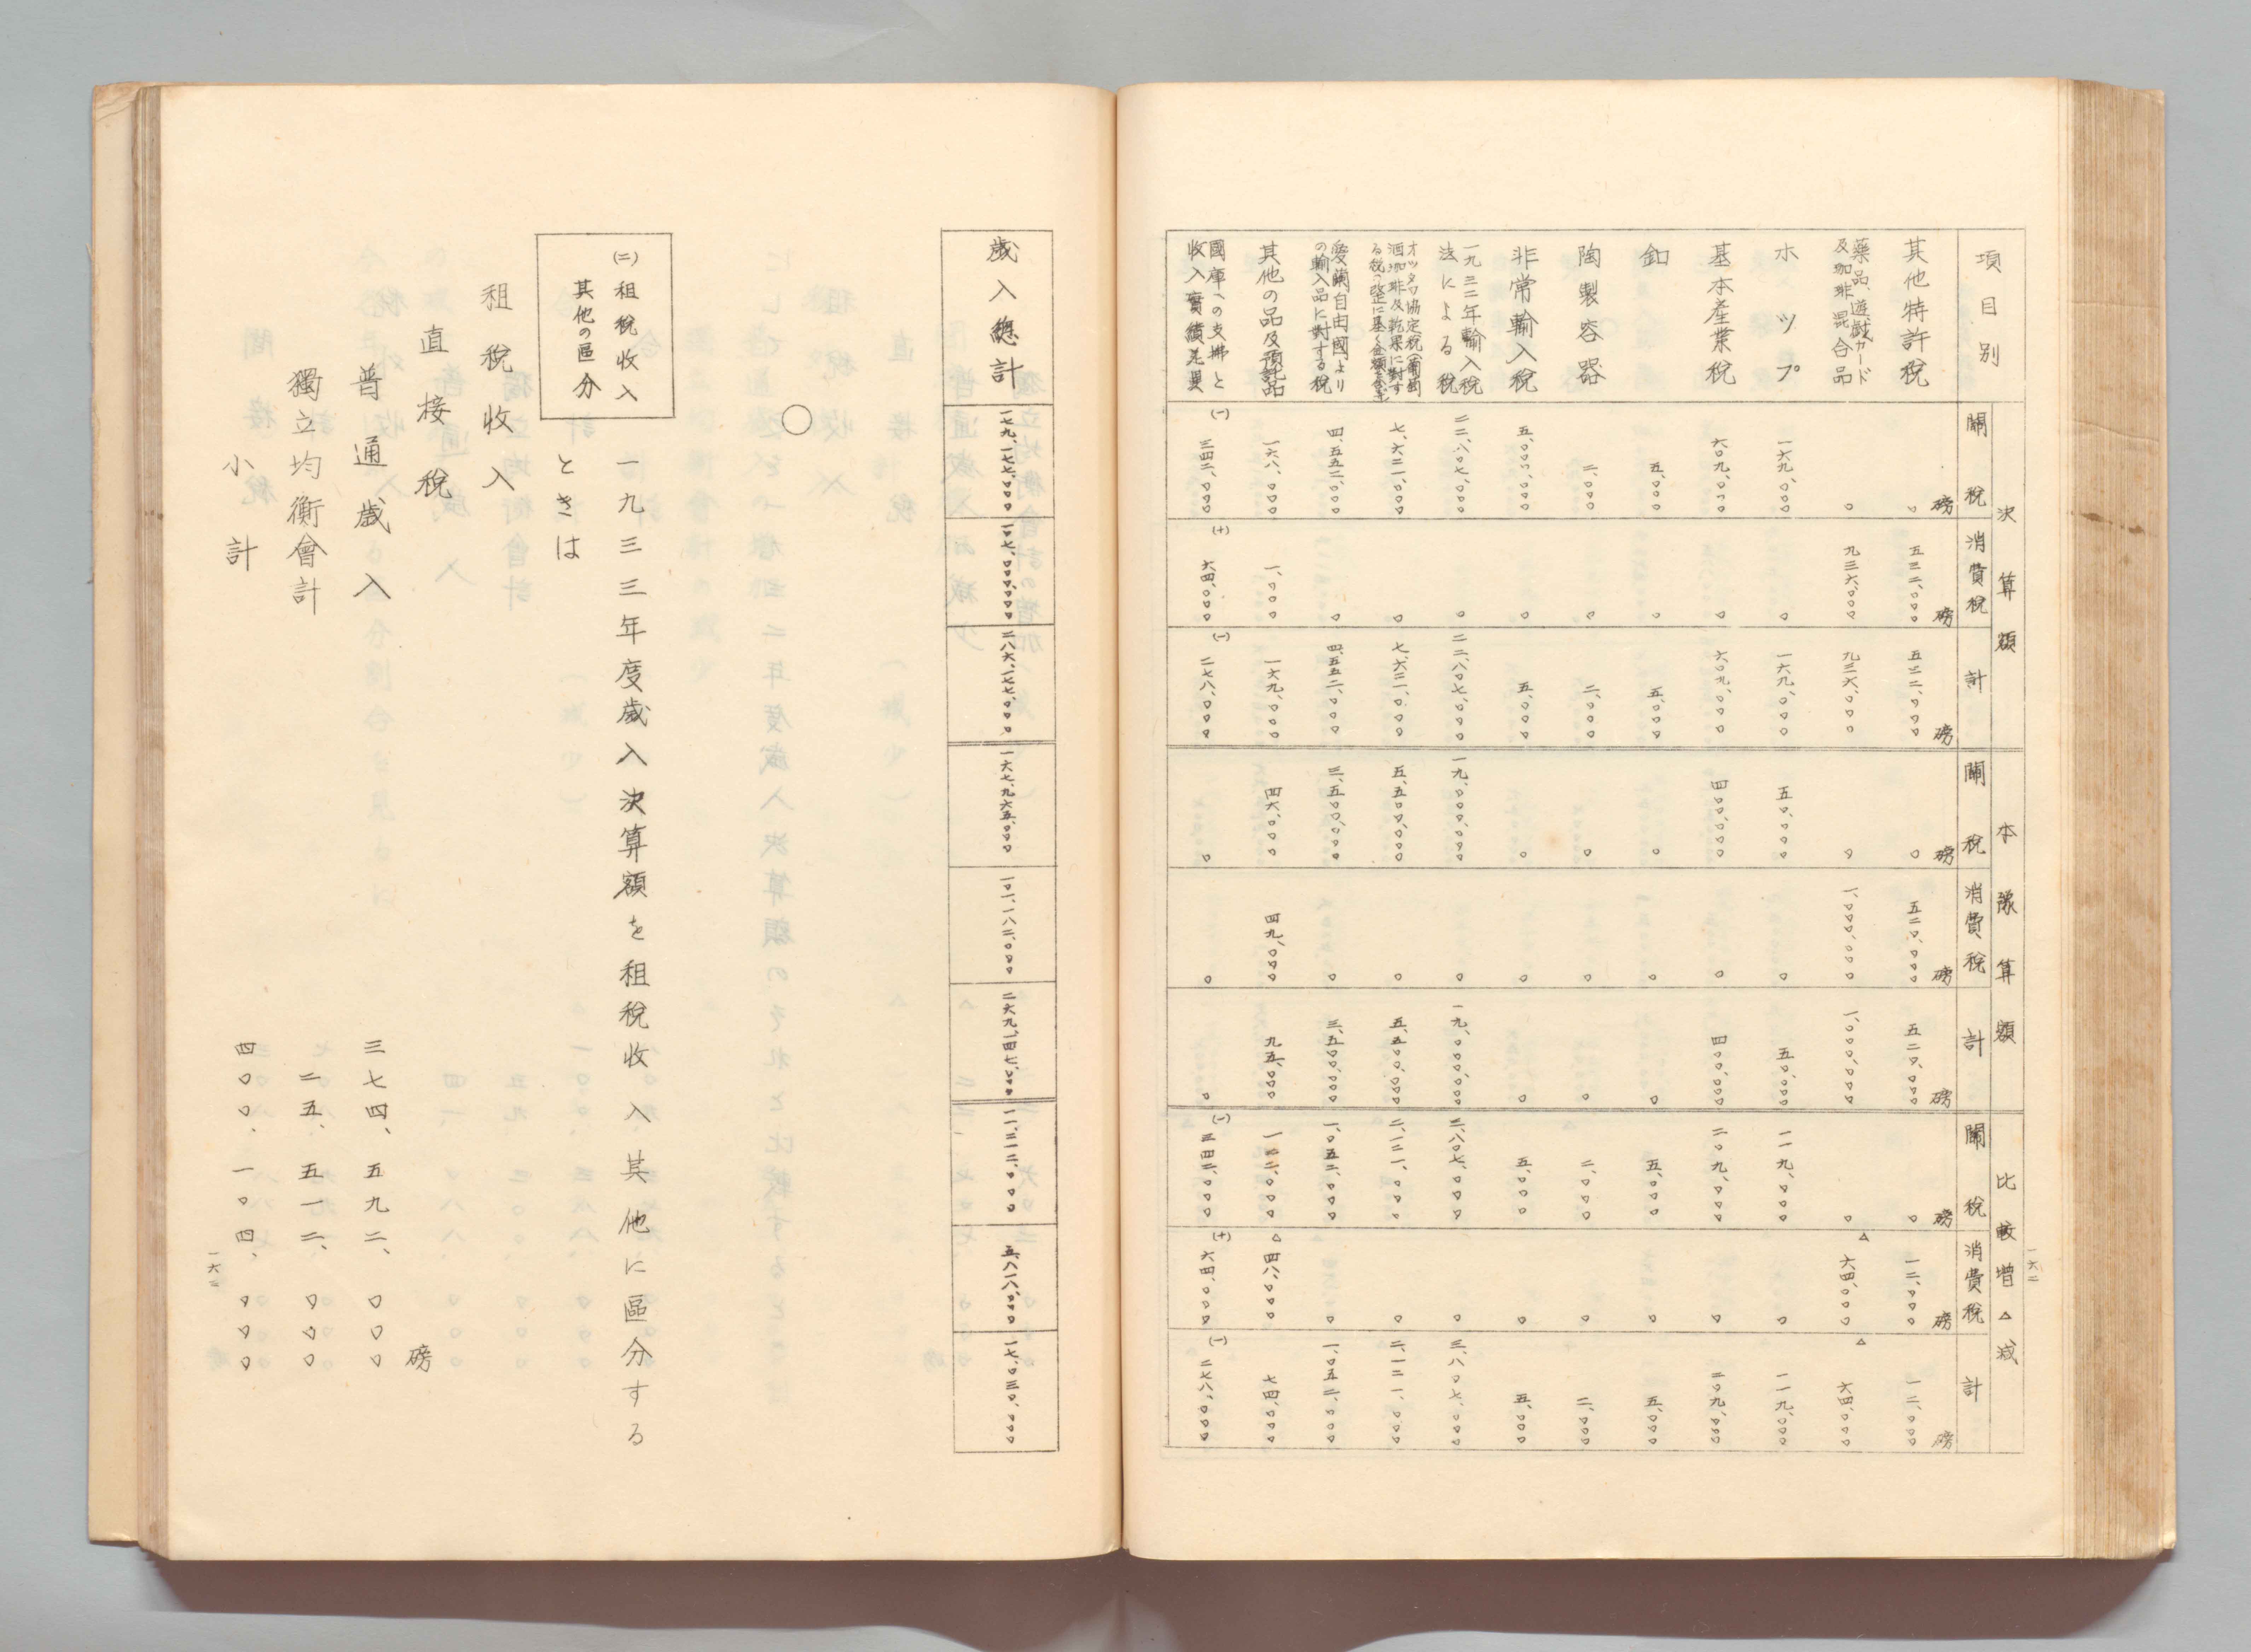 一六二
決算額 本豫算額 比較增△減
項目別 關稅 消費稅 計 關稅 消費稅 計 關稅 消費稅 計
磅 磅 磅 磅 磅 磅 磅 磅 磅
其他特許稅 〇 五三二、〇〇〇 五三二、〇〇〇 〇 五二〇、〇〇〇 五二〇、〇〇〇 〇 一二、〇〇〇 一二、〇〇〇
藥品、遊戲カード及珈琲混合品 〇 九三六、〇〇〇 九三六、〇〇〇 〇 一、〇〇〇、〇〇〇 一、〇〇〇、〇〇〇 〇 △六四、〇〇〇 △六四、〇〇〇
ホツプ 一六九、〇〇〇 〇 一六九、〇〇〇 五〇、〇〇〇 〇 五〇、〇〇〇 一一九、〇〇〇 〇 一一九、〇〇〇
基本產業稅 六〇九、〇〇〇 〇 六〇九、〇〇〇 四〇〇、〇〇〇 〇 四〇〇、〇〇〇 二〇九、〇〇〇 〇 二〇九、〇〇〇
釦 五、〇〇〇 〇 五、〇〇〇 〇 〇 〇 五、〇〇〇 〇 五、〇〇〇
陶製容器 二、〇〇〇 〇 二、〇〇〇 〇 〇 〇 二、〇〇〇 〇 二、〇〇〇
非常輸入稅 五、〇〇〇 〇 五、〇〇〇 〇 〇 〇 五、〇〇〇 〇 五、〇〇〇
一九三二年輸入稅法による稅 二二、八〇七、〇〇〇 〇 二二、八〇七、〇〇〇 一九、〇〇〇、〇〇〇 〇 一九、〇〇〇、〇〇〇 三、八〇七、〇〇〇 〇 三、八〇七、〇〇〇
オツタワ協定稅(葡萄酒珈琲及乾果に對する稅の改正に基く金額を含む) 七、六二一、〇〇〇 〇 七、六二一、〇〇〇 五、五〇〇、〇〇〇 〇 五、五〇〇、〇〇〇 二、一二一、〇〇〇 〇 二、一二一、〇〇〇
愛蘭自由國よりの輸入品に對する稅 四、五五二、〇〇〇 〇 四、五五二、〇〇〇 三、五〇〇、〇〇〇 〇 三、五〇〇、〇〇〇 一、〇五二、〇〇〇 〇 一、〇五二、〇〇〇
其他の品及預託品 一六八、〇〇〇 一、〇〇〇 一六九、〇〇〇 四六、〇〇〇 四九、〇〇〇 九五、〇〇〇 一二二、〇〇〇 △四八、〇〇〇 七四、〇〇〇
國庫への支拂と收入實績差異 (一)三四二、〇〇〇 (十)六四、〇〇〇 (一)二七八、〇〇〇 〇 〇 〇 (一)三四二、〇〇〇 (十)六四、〇〇〇 (一)二七八、〇〇〇
歲入總計 一七九、一七七、〇〇〇 一〇七、〇〇〇、〇〇〇 二八六、一七七、〇〇〇 一六七、九六五、〇〇〇 一〇一、一八二、〇〇〇 二六九、一四七、〇〇〇 一一、二一二、〇〇〇 五、八一八、〇〇〇 一七、〇三〇、〇〇〇
〇
(二)租稅收入
其他の區分
一九三三年度歲入決算額を租稅收入其他に區分する
ときは
租稅收入
直接稅 磅
普通歲入 三七四、五九二、〇〇〇
獨立均衡會計 二五、五一二、〇〇〇
小計 四〇〇、一〇四、〇〇〇